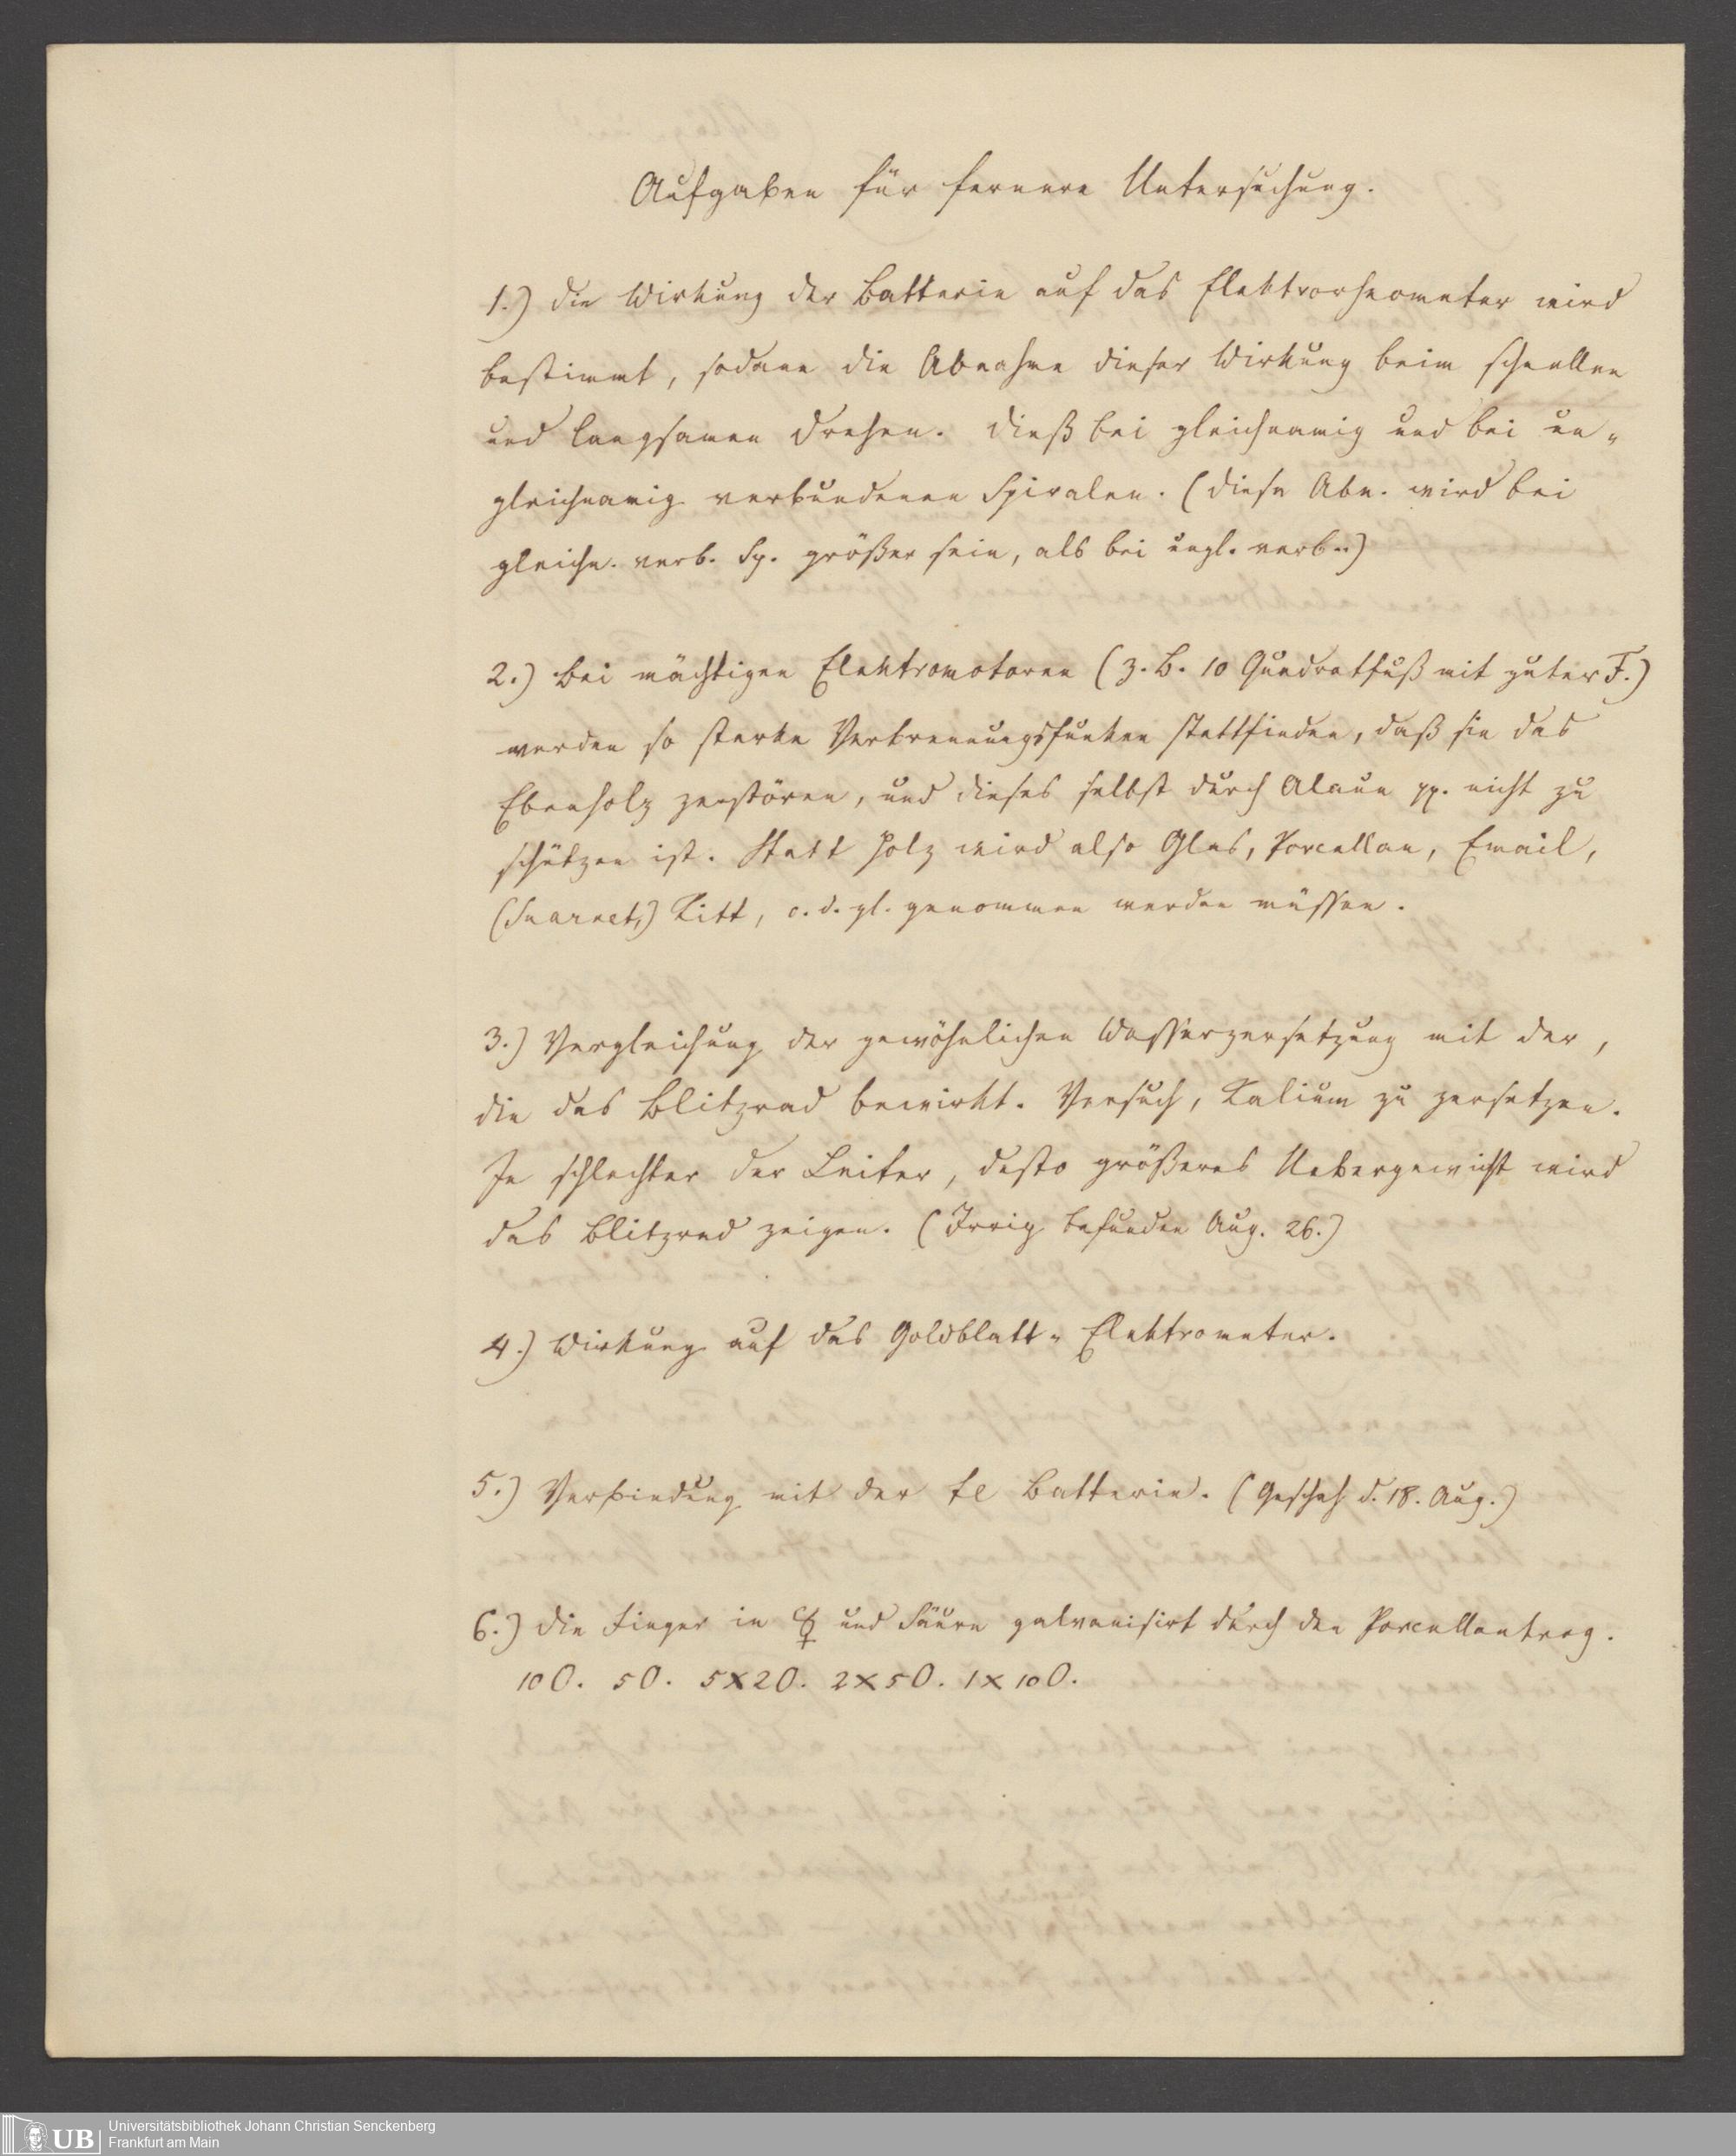 Aufgaben für fernere Untersuchung.
1.) Die Wirkung der Batterie auf das Elektrorheometer wird
bestimmt, sodann die Abnahme dieser Wirkung beim schnellen
und langsamen Drehen. Dieß bei gleichnamig und bei un-
gleichnamig verbundenen Spiralen. (Diese Abn. wird bei
gleichn. verb. Sp. größer sein, als bei ungl. verb..)
2.) Bei mächtigen Elektromotoren (z. B. 10 Quadratfuß mit guter F.)
werden so starke Verbrennungsfunken stattfinden, daß sie das
Ebenholz zerstören, und dieses selbst durch Alaun pp. nicht zu
schützen ist. Statt Holz wird also Glas, Porcellan, Email,
Kitt, o. d. gl. genommen werden müssen.
3.) Vergleichung der gewöhnlichen Wasserzersetzung mit der,
die das Blitzrad bewirkt. Versuch, Kalium zu zersetzen.
Je schlechter der Leiter, desto größeres Uebergewicht wird
das Blitzrad zeigen. (Irrig befunden Aug. 26.)
4.) Wirkung auf das Goldblatt-Elektrometer.
5.) Verbindung mit der Batterie. (Geschah d. 18. Aug.)
6.) Die Finger in ☿ und Säure galvanisirt durch den Porcellantrog.
10 0. 50. 5x20. 2x50. 1x100.
Universitätsbibliothek Johann Christian Senckenberg
Frankfurt am Main
UB